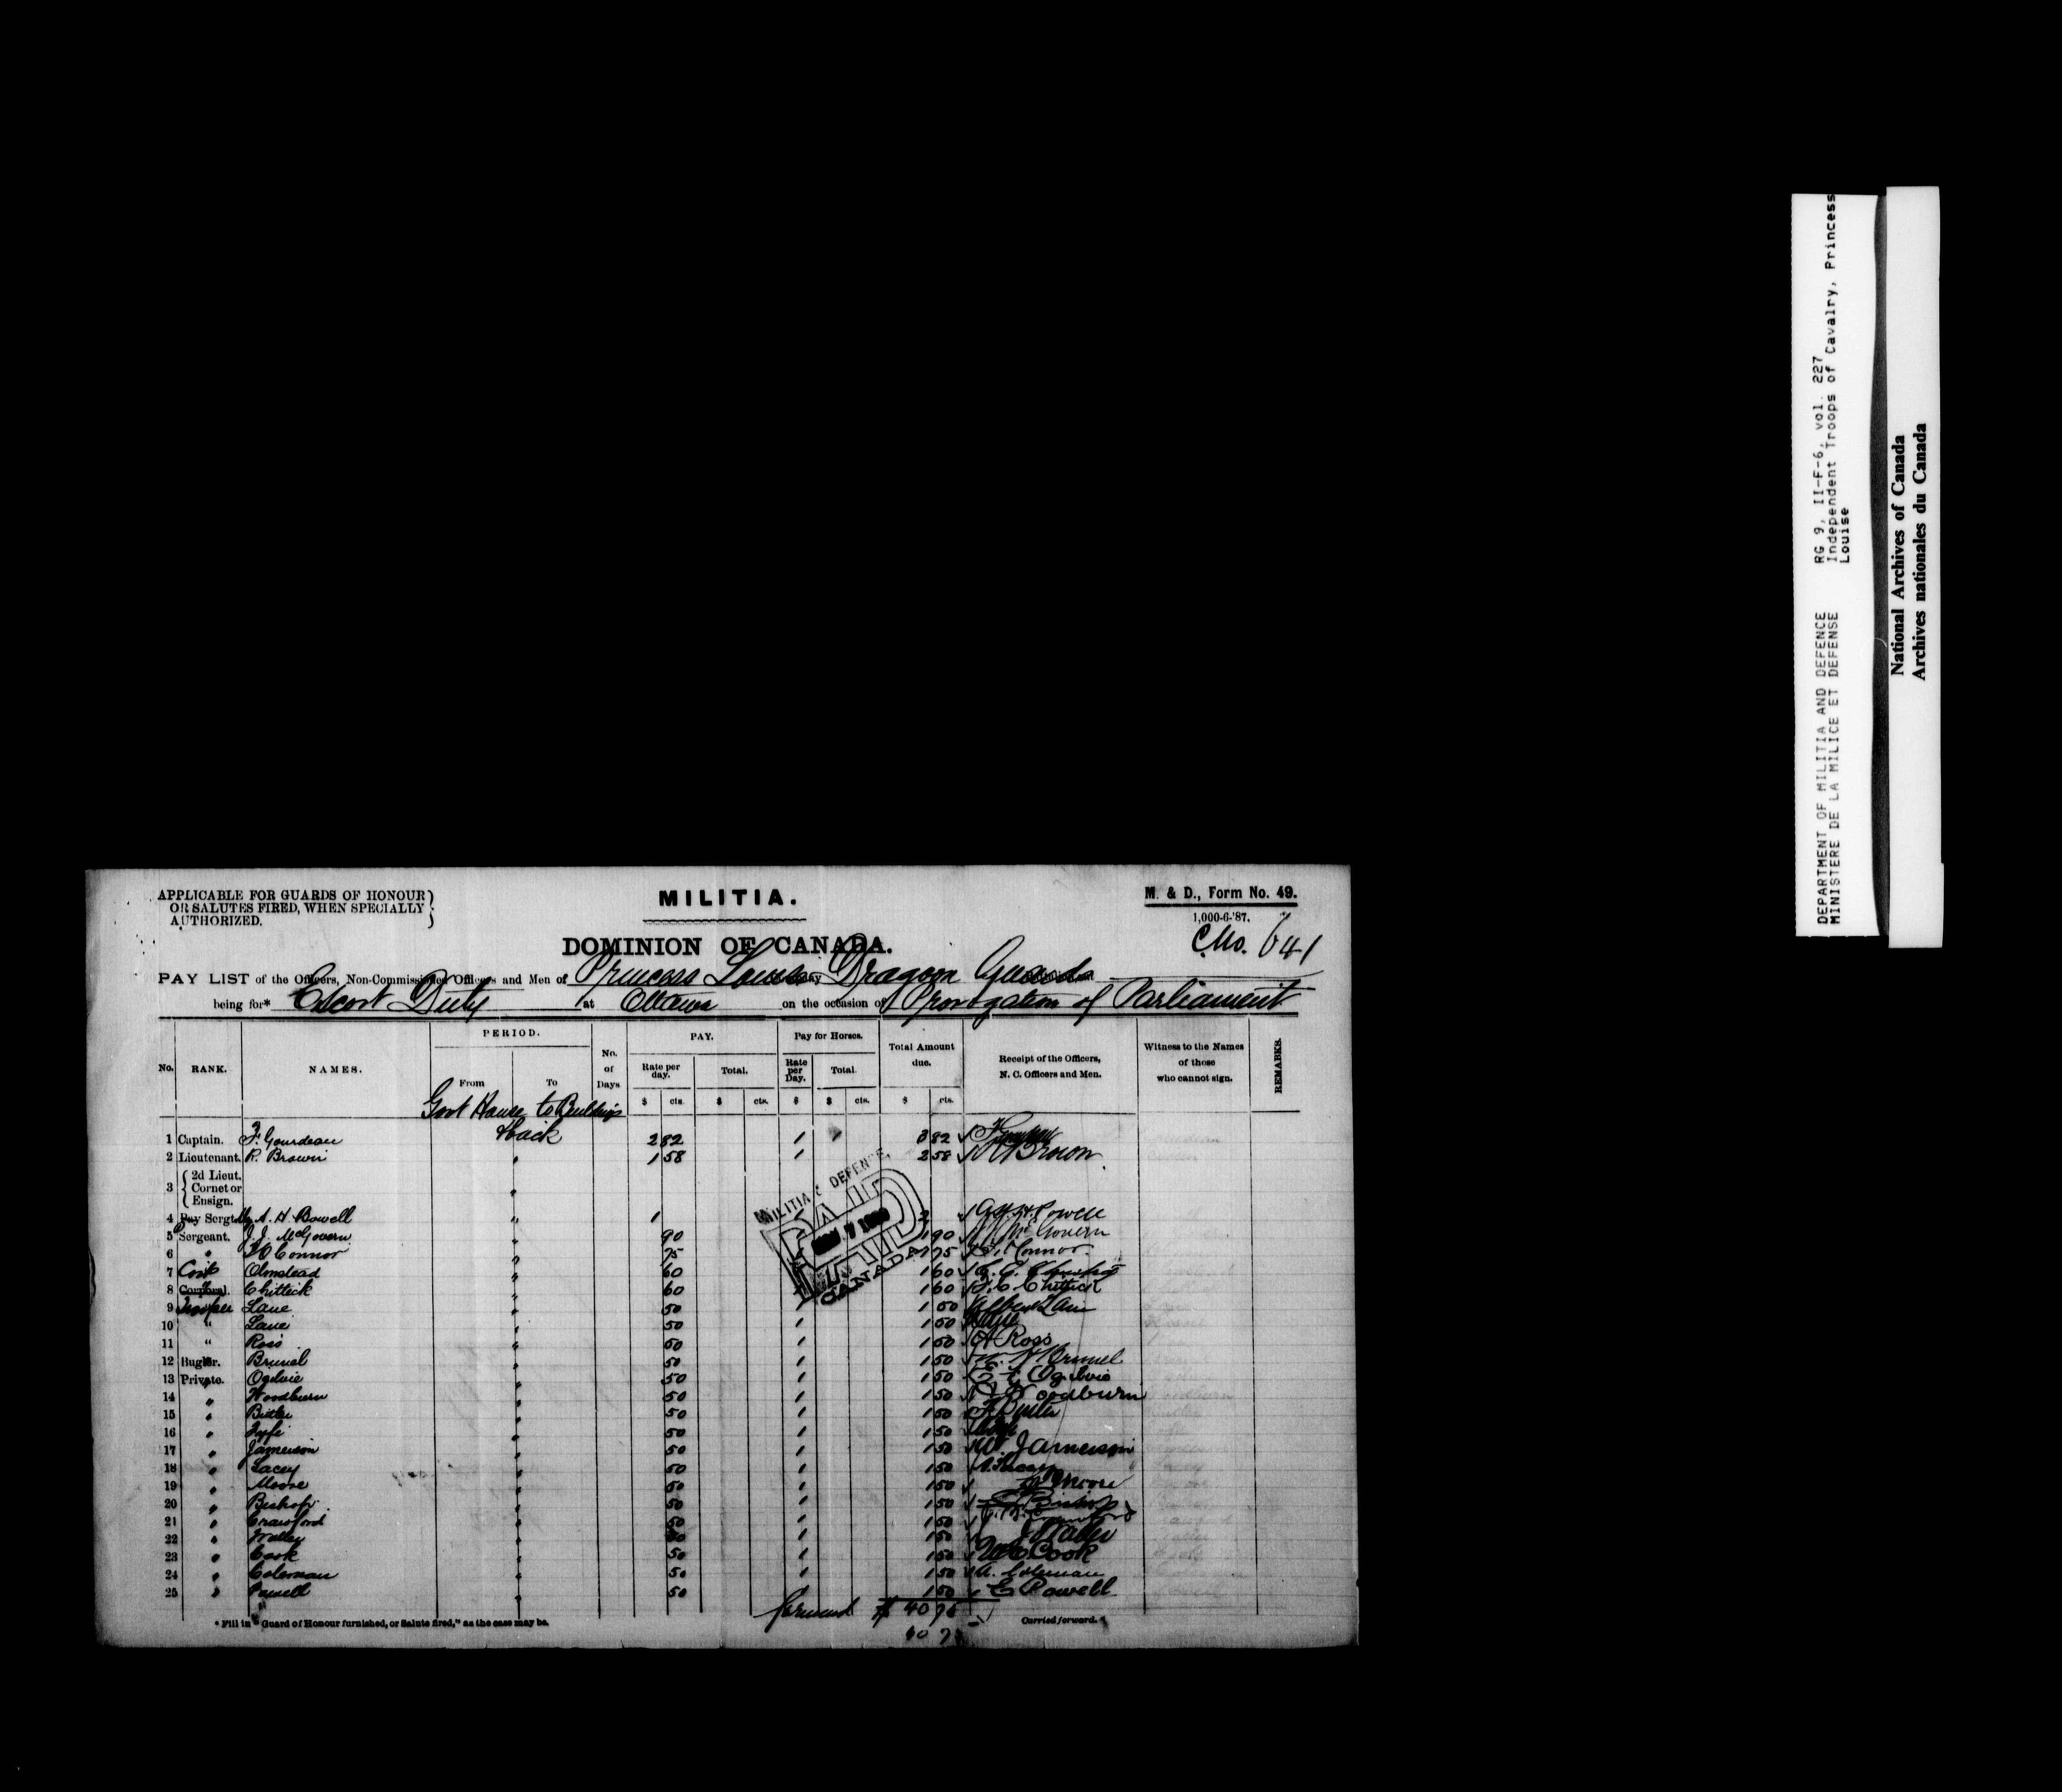 APPLICABLE FOR GUARDS OF HONOUR
OR SALUTES FIRED, WHEN SPECIALLY
AUTHORIZED.
MILITIA.
M. & D., Form No. 49.
1,000-6-'87.
C.No. 641
DOMINION OF CANADA.
PAY LIST of the Officers, Non-Commissioned Officers and Men of Princess Louise Dragoon Guards
being for* Escort Duty at Ottawa on the occasion of Prorogation of Parliament
No. RANK. NAMES. PERIOD. From To No. of Days PAY. Rate per day. Total. Pay for Horses. Rate per Day. Total Total Amount due. Receipt of the Officers, N. C. Officers and Men. Witness to the Names of those who cannot sign. REMARKS.
$ cts. $ cts. $ $ cts. $ cts.
Govt House to Buildings
1 Captain. F. Gourdeau & back 2 82 1 1 3 82
2 Lieutenant. R. Brown " 1 58 1 2 58 R Brown
3 2d Lieut. Cornet or Ensign. "
4 Pay Sergt. A. H. Bowell " 1 2
5 Sergeant. J. J. McGovern " 90 1 90 McGovern
6 " O Connor " 75 1 75 Connor
7 Corp Olmstead " 60 1 60
8 Corporal. Chittick " 60 1 60 Chittick
9 Trooper Lane " 50 1 1 50
10 " Lane " 50 1 1 50
11 " Ross " 50 1 1 50 A Ross
12 Bugler. Brunel " 50 1 1 50 Brunel
13 Private. Ogilvie " 50 1 1 50 Ogilvie
14 " Woodburn " 50 1 1 50 Woodburn
15 " Butler " 50 1 1 50 F Butler
16 " Fyfe " 50 1 1 50
17 " Jamerson " 50 1 1 50 W. Jamerson
18 " Lacey " 50 1 1 50 A. Lacey
19 " Moore " 50 1 1 50 Moore
20 " Bishop " 50 1 1 50 Bishop
21 " Crawford " 50 1 1 50 Crawford
22 " " 50 1 1 50
23 " Cook " 50 1 1 50 Cook
24 " Coleman " 50 1 1 50 A. Coleman
25 " Powell " 50 1 50 E Powell
forward $ 40 75
Carried forward.
40 75
* Fill in "Guard of Honour furnished, or Salute fired," as the case may be.
MILITIA & DEFENCE,
PAID
CANADA
DEPARTMENT OF MILITIA AND DEFENCE RG 9, II-F-6, vol. 227
MINISTERE DE LA MILICE ET DEFENSE Independent Troops of Cavalry, Princess
Louise
National Archives of Canada
Archives nationales du Canada